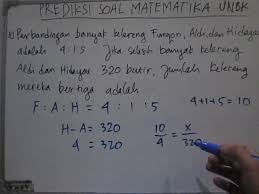 PREDIKSI SOAL MATEMATIKA UNBK
Perbandingan banyak kelereng Furqon, Aldi, dan Hidayar
adalah 4:1:5 Jika selisih banyak kelereng
Aldi dan Hidayar 320 butir, Jumlah kelereng
mereka bertiga adalah
F : A : H = 4 : 1 : 5
4+1+5 = 10
H-A = 320
4 = 320
10/4 = x/320